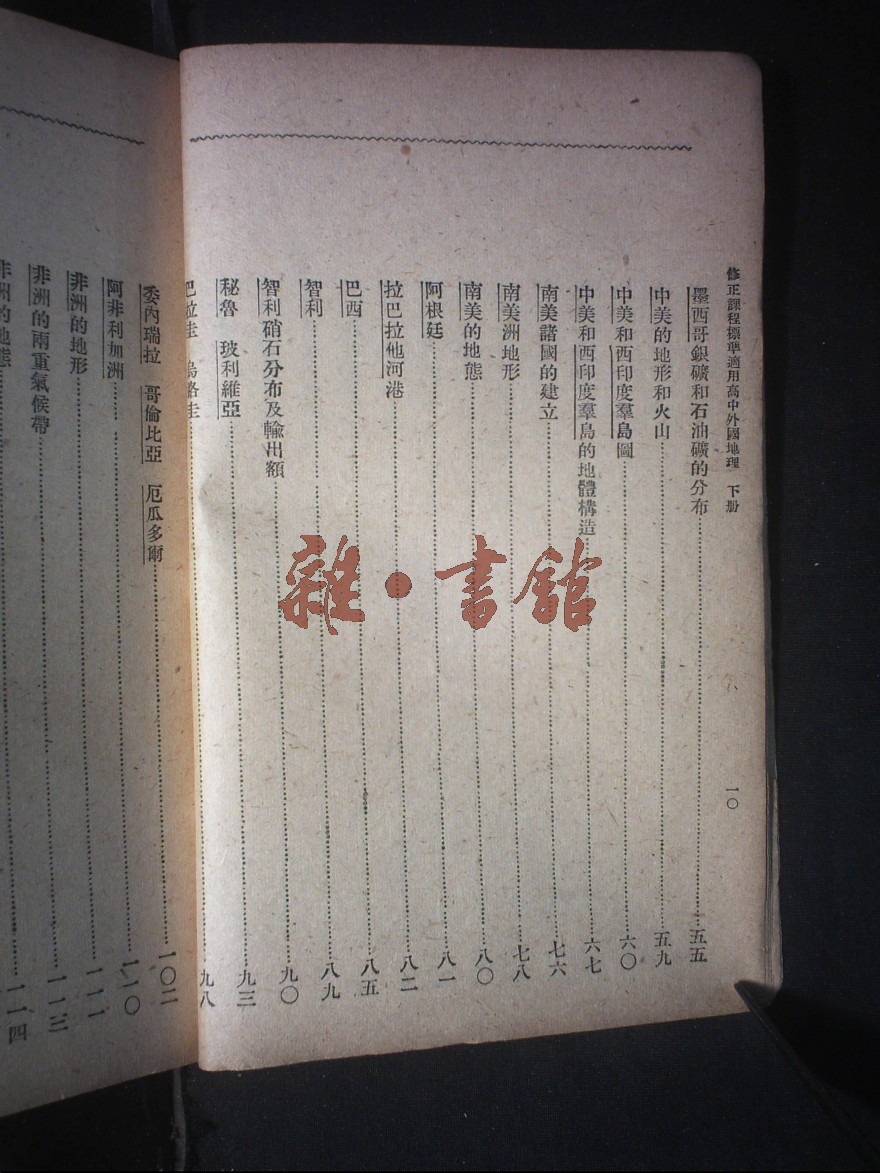 修正課程標準適用高中外國地理 下册 一〇
墨西哥銀礦和石油礦的分布……五五
中美的地形和火山……五九
中美和西印度羣島圖……六〇
中美和西印度羣島的地體構造……六七
南美諸國的建立……七六
南美洲地形……七八
南美的地態……八〇
阿根廷……八一
拉巴拉他河港……八二
巴西……八五
智利……八九
智利硝石分布及輸出額……九〇
秘魯 玻利維亞……九三
巴拉圭 烏路圭……九八
委內瑞拉 哥倫比亞 厄瓜多爾……一〇二
阿非利加洲……一一〇
非洲的地形……一一一
非洲的兩重氣候帶……一一三
非洲的地態……一一四
雜·書館